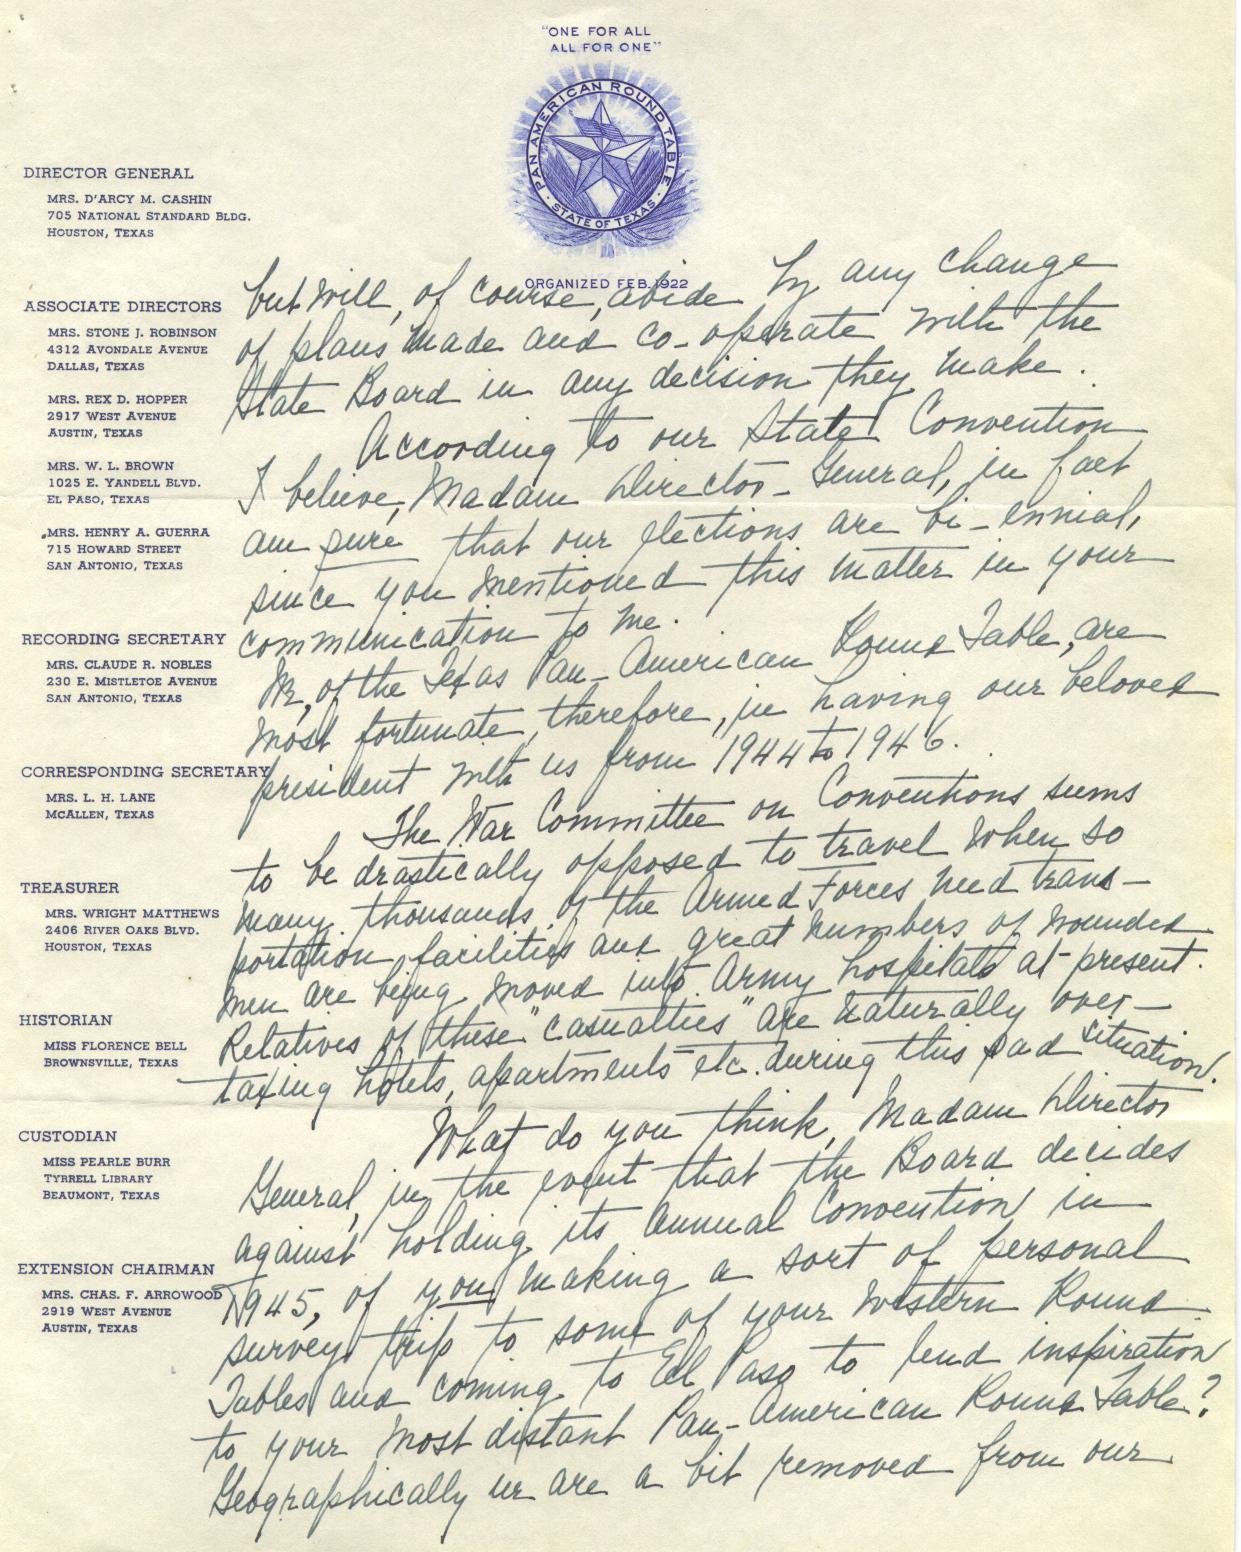 "ONE FOR ALL
ALL FOR ONE"
PAN AMERICAN ROUND TABLE
STATE OF TEXAS
ORGANIZED FEB. 1922
DIRECTOR GENERAL
MRS. D'ARCY M. CASHIN
705 NATIONAL STANDARD BLDG.
HOUSTON, TEXAS
ASSOCIATE DIRECTORS
MRS. STONE J. ROBINSON
4312 AVONDALE AVENUE
DALLAS, TEXAS
MRS. REX D. HOPPER
2917 WEST AVENUE
AUSTIN, TEXAS
MRS. W. L. BROWN
1025 E. YANDELL BLVD.
EL PASO, TEXAS
MRS. HENRY A. GUERRA
715 HOWARD STREET
SAN ANTONIO, TEXAS
RECORDING SECRETARY
MRS. CLAUDE R. NOBLES
230 E. MISTLETOE AVENUE
SAN ANTONIO, TEXAS
CORRESPONDING SECRETARY
MRS. L. H. LANE
MCALLEN, TEXAS
TREASURER
MRS. WRIGHT MATTHEWS
2406 RIVER OAKS BLVD.
HOUSTON, TEXAS
HISTORIAN
MISS FLORENCE BELL
BROWNSVILLE, TEXAS
CUSTODIAN
MISS PEARLE BURR
TYRRELL LIBRARY
BEAUMONT, TEXAS
EXTENSION CHAIRMAN
MRS. CHAS. F. ARROWOOD
2919 WEST AVENUE
AUSTIN, TEXAS
but will, of course, abide by any change
of plans made and co-operate with the
State Board in any decision they make.
According to our State Convention
I believe, Madam Director-General, in fact
am sure that our elections are bi-ennial,
since you mentioned this matter in your
communication to me.
We, of the Texas Pan-American Round Table, are
most fortunate, therefore, in having our beloved
president with us from 1944 to 1946.
The War Committee on Conventions seems
to be drastically opposed to travel when so
many thousands of the Armed Forces need trans-
portation facilities and great numbers of wounded
men are being moved into Army hospitals at present.
Relatives of these "casualties" are naturally over-
taxing hotels, apartments etc. during this sad situation.
What do you think, Madam Director
General, in the event that the Board decides
against holding its annual Convention in
1945, of you making a sort of personal
survey trip to some of your Western Round
Tables and coming to El Paso to lend inspiration
to your most distant Pan-American Round Table?
Geographically we are a bit removed from our